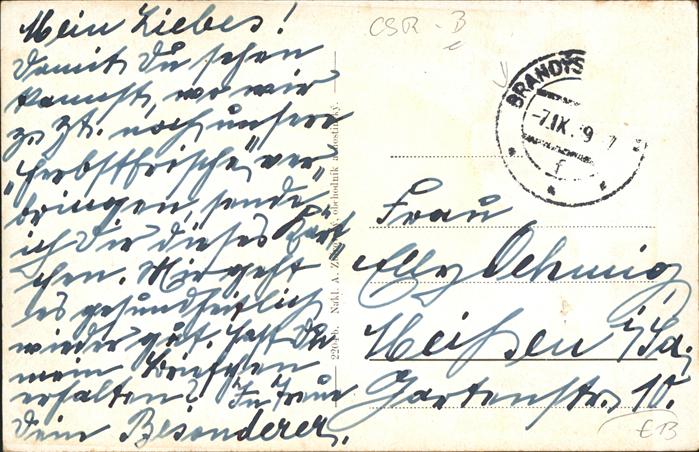 Mein Liebes!
Damit Du sehen
kannst, wo wir
z. Zt. noch unsere
„Herbstfrische" ver-
bringen, sende
ich Dir dieses Kärt-
chen. Mir geht
es gesundheitlich
wieder gut. Hast Du
mein Briefchen
erhalten? In Treue
Dein Besonderer.
2204 b. Nakl. A.
obchodník a hostinský.
CSR - B
BRANDÝS
-7.IX.
Frau
Elly Oehmig
Meißen i/Sa.
Gartenstr. 10.
E13